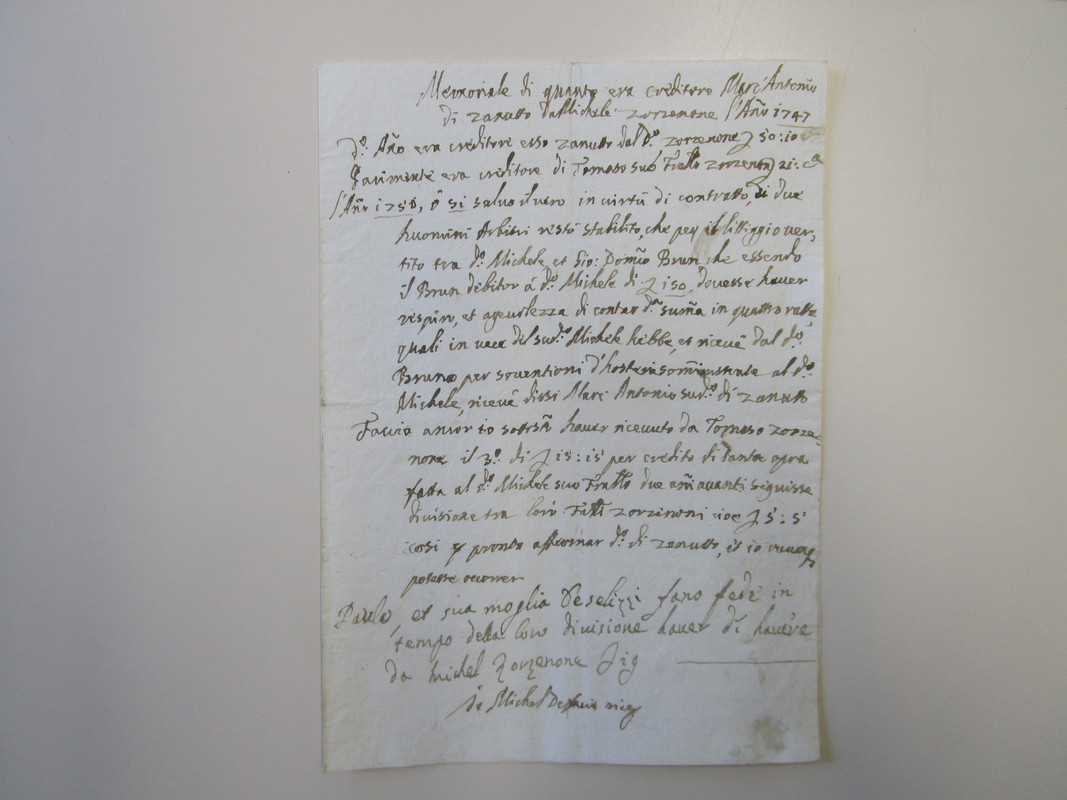 Memoriale di quanto era creditore Marc'Antonio
di Zanutto da Michele Zorzenone l'Año 1747
dº. Año era creditore esso Zanutto dal dº. Zorzenone £ 50:10
Parimente era creditore di Tomaso suo Frallo Zorzenon £ 21:
l'Año 1750, ò si salvo il vero in virtù di contratto, di due
huomini Arbitri restò stabilito, che per il littiggio ver,
tito tra dº. Michele, et Gio: Domco Brun, che essendo
il Brun debitor à dº. Michele di £ 150, dovesse haver
respiro, et agevolezza di contar dª. suma in quattro ratte,
quali in vece del sudº. Michele hebbe, et ricevè dal dº.
Bruno per soventioni d'hosteria somministrate al dº.
Michele, ricevè dissi Marc' Antonio sudº. di Zanutto
Faccio ancor io haver ricevuto da Tomaso Zorze-
none il 3º. di £ 15:15 per credito di tante opra
fatta al dº. Michele suo Frallo due añi avanti seguisse
divisione tra loro Fratti Zorzenoni cioe £ 5:5
così p pronto affermar dº. di Zanutto, et io
potesse occorrer
Paulo, et sua moglia fano fede in
tempo della loro divisione haver di havere
da Michel Zorzenone £ 19
Io Michel